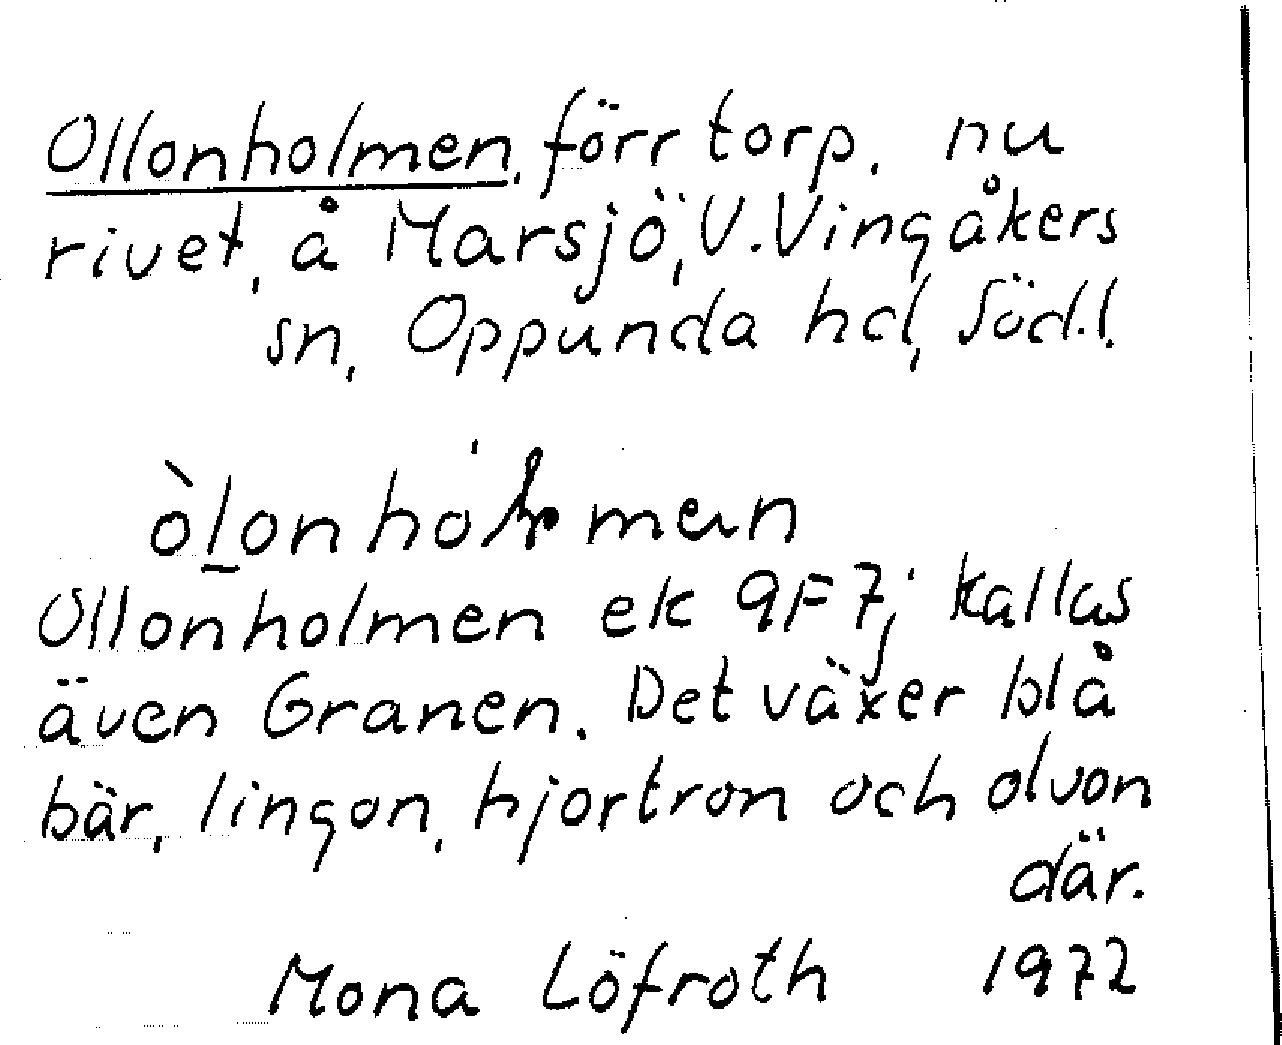 Ollonholmen, förr torp, nu
rivet, å Marsjö, V. Vingåkers
sn, Oppunda hd, Södl.
Ollonholmen ek 9F7j kallas
även Granen. Det växer blå
bär, lingon, hjortron och olvon
där.
Mona Löfroth 1972